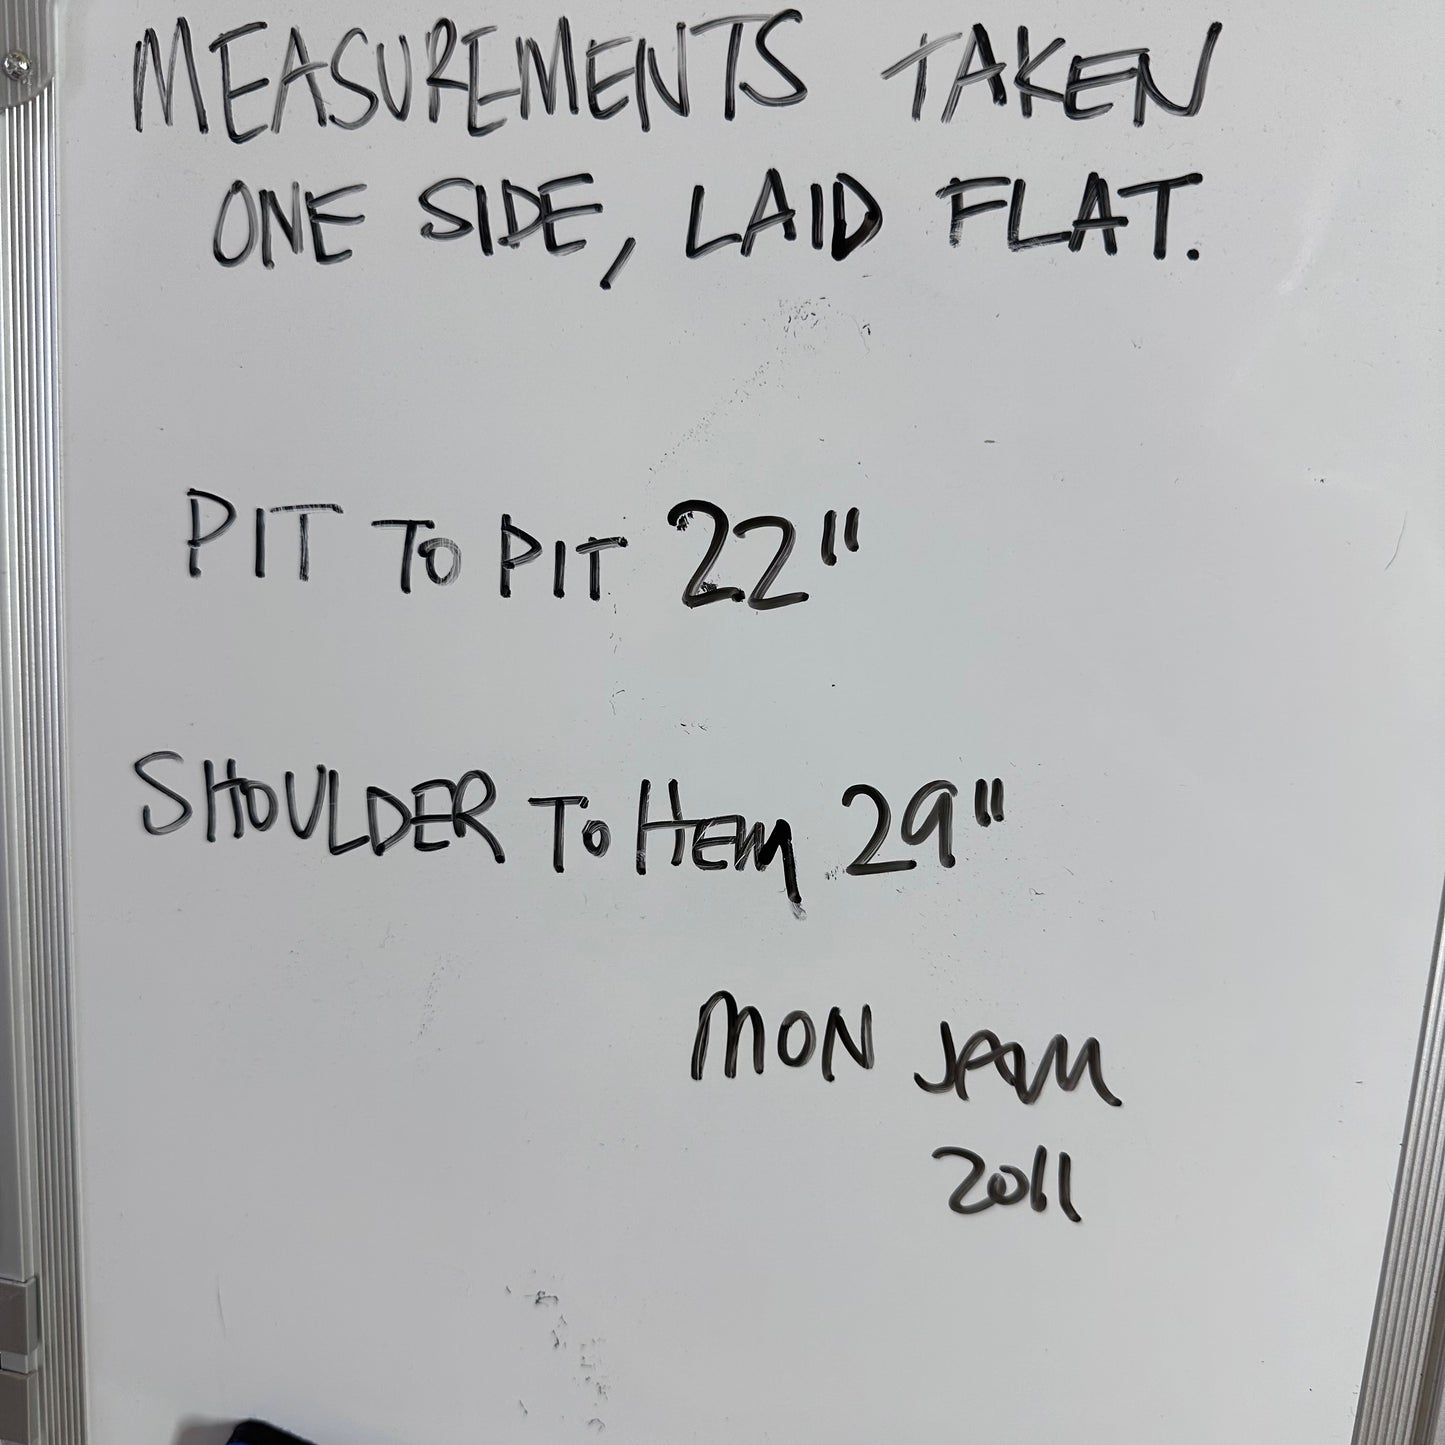 MEASUREMENTS TAKEN
ONE SIDE, LAID FLAT.
PIT TO PIT 22"
SHOULDER TO HEM 29"
MON JAM
2011